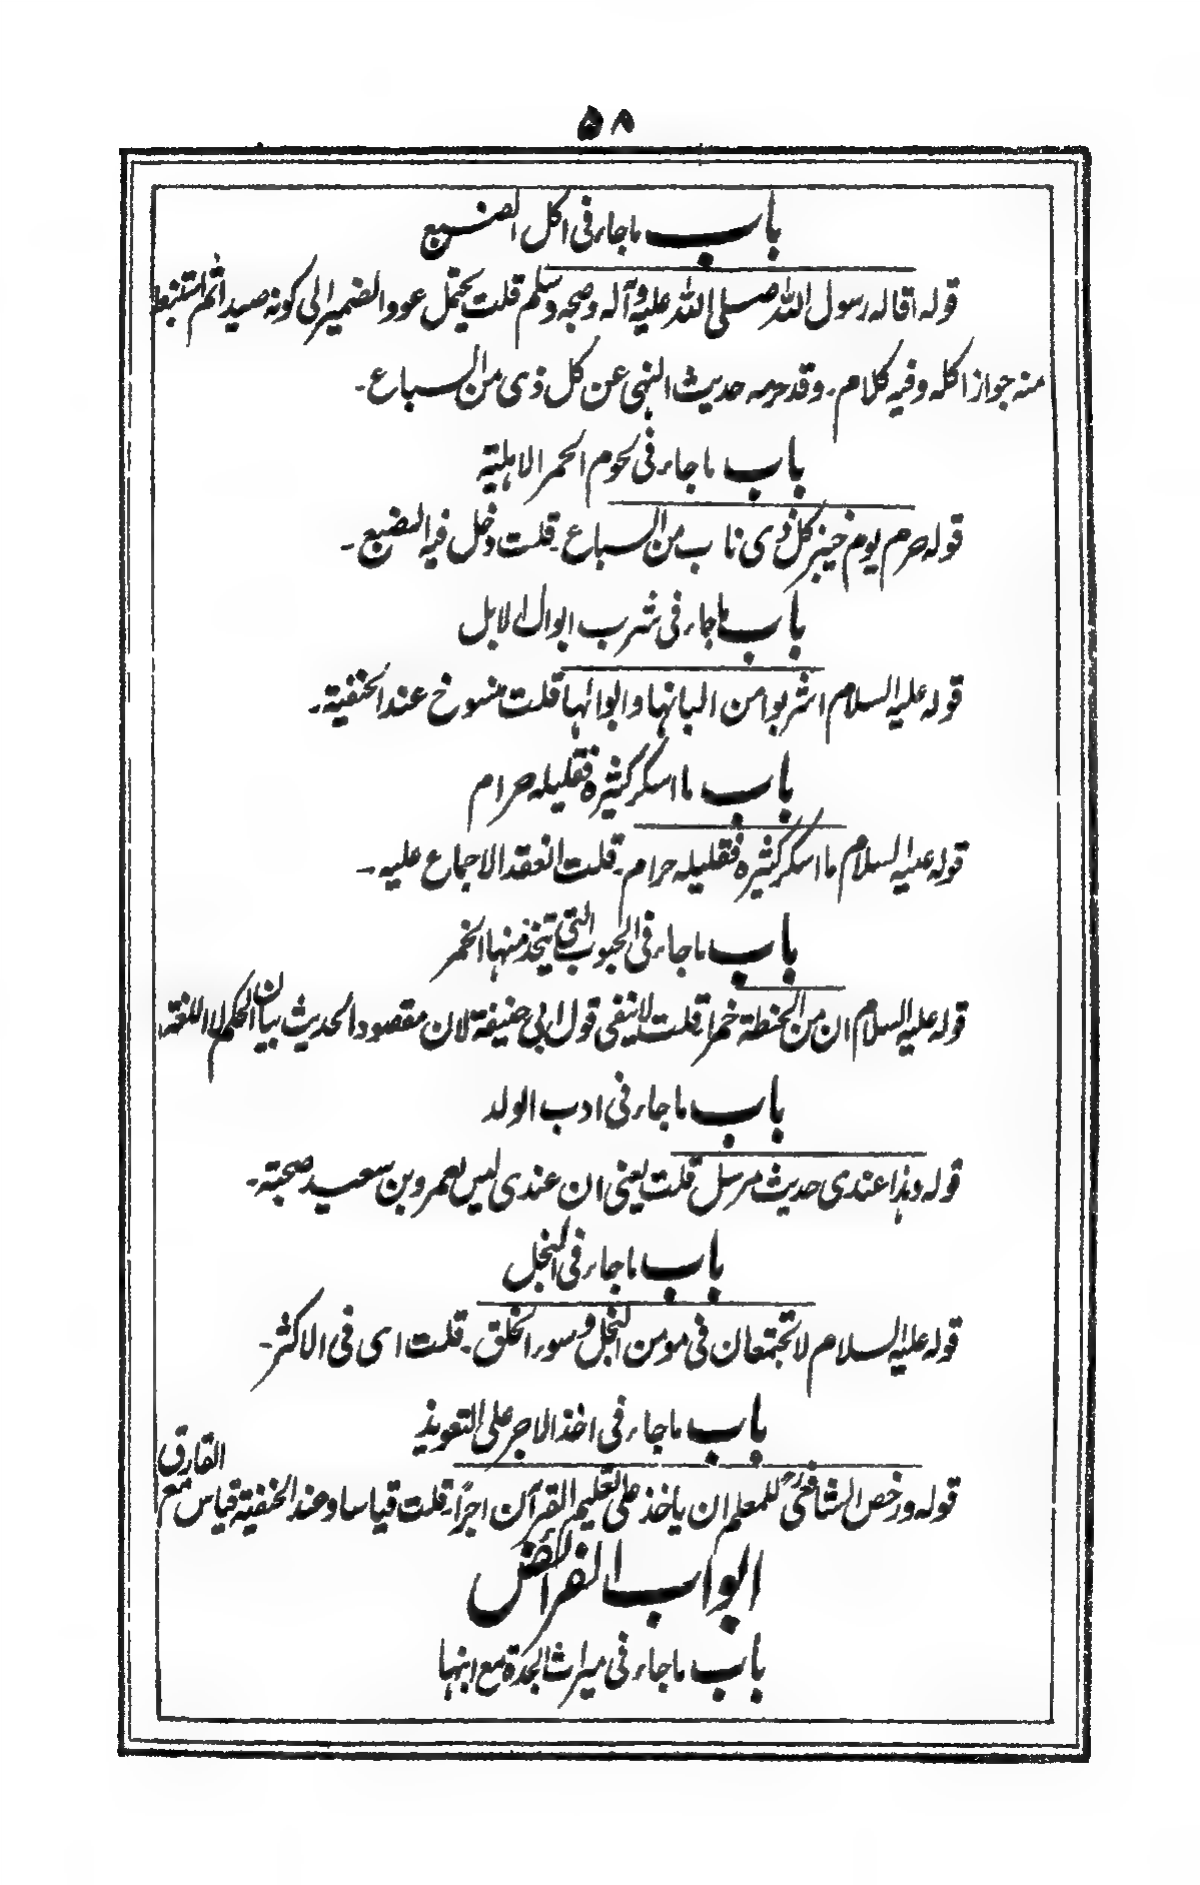 ۵۸
باب ماجاء فی اکل الضبع
قولہ اقالہ رسول اللہ صلی اللہ علیہ وآلہ وصحبہ وسلم قلت یحتمل عود الضمیر الی کونہ صیدا ثم استنبط
منہ جواز اکلہ وفیہ کلام۔ وقد حرمہ حدیث النہی عن کل ذی من السباع۔
باب ماجاء فی لحوم الحمر الاہلیة
قولہ حرم یوم خیبر کل ذی ناب من السباع۔ قلت دخل فیہ الضبع۔
باب ماجاء فی شرب ابوال الابل
قولہ علیہ السلام اشربوا من البانہا وابوالہا قلت منسوخ عند الحنفیة۔
باب ما اسکر کثیرہ فقلیلہ حرام
قولہ علیہ السلام ما اسکر کثیرہ فقلیلہ حرام۔ قلت انعقد الاجماع علیہ۔
باب ماجاء فی الحبوب التی یتخذ منہا الخمر
قولہ علیہ السلام ان من الحنطة خمرا قلت لا ینفی قول ابی حنیفة لان مقصود الحدیث بیان الحکم لا اللغة۔
باب ماجاء فی ادب الولد
قولہ وہذا عندی حدیث مرسل قلت یعنی ان عندی لیس لعمرو بن سعید صحبة۔
باب ماجاء فی البخل
قولہ علیہ السلام لا تجتمعان فی مومن البخل وسور الخلق۔ قلت ای فی الاکثر۔
باب ماجاء فی اخذ الاجر علی التعویذ
قولہ ورخص الشافعیؒ للمعلم ان یاخذ علی تعلیم القرآن اجرًا۔ قلت قیاسا وعند الحنفیة قیاس مع الفارق
ابواب الفرائض
باب ماجاء فی میراث الجدة مع ابنہا